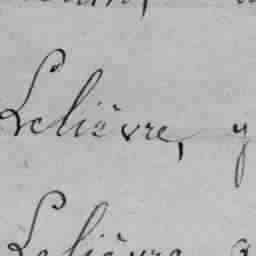 Lelièvre, y
Lelièvre